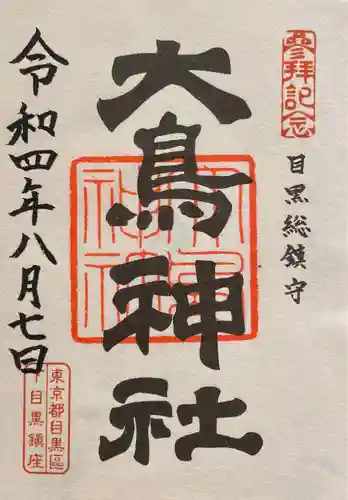 參拜記念
目黒総鎮守
大鳥神社
令和四年八月七日
東京都目黒區
下目黒鎮座